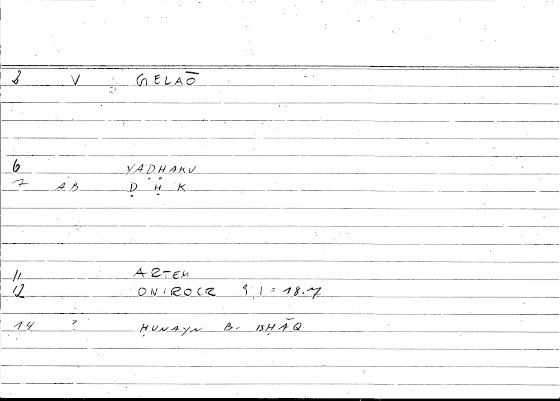 8 V GELAŌ
6 YAḌḤAKU
7 AB Ḍ Ḥ K
11 ARTEM
12 ONIROCR 9,1 = 18.7
14 ? ḤUNAYN B. ISḤĀQ